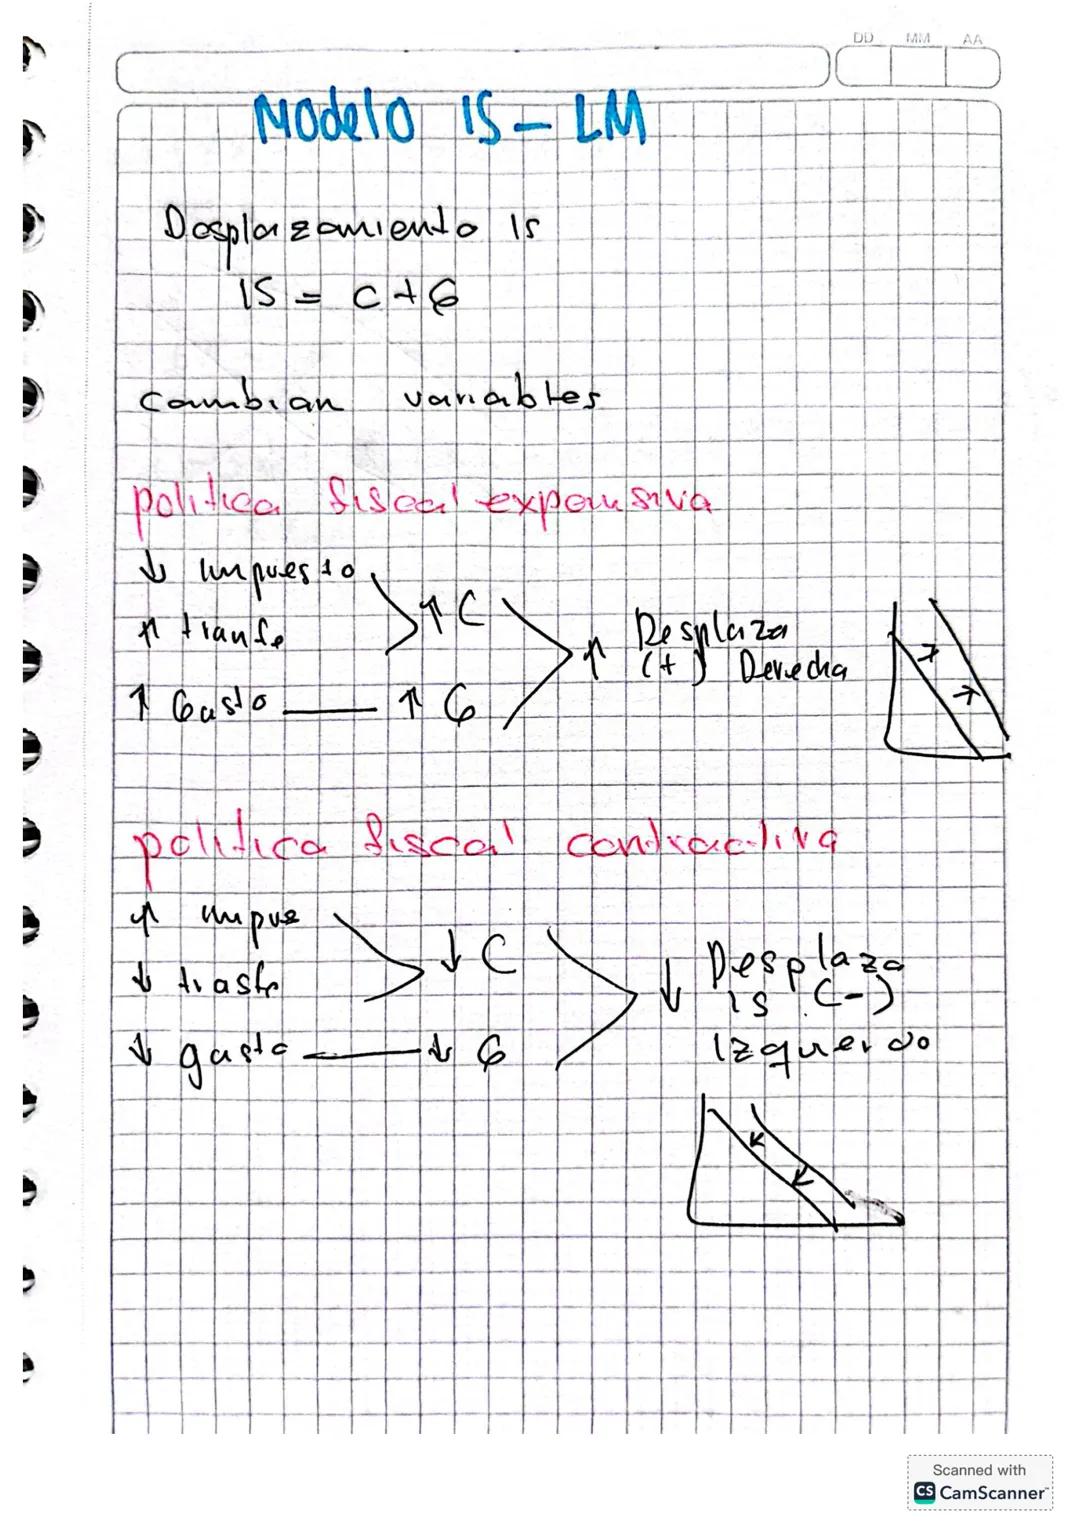 DD MM AA
Modelo IS - LM
Desplazamiento IS
IS = C + G
cambian variables
politica fiscal expansiva
↓ impuesto
↑ transfe
↑ C
↑ Gasto — ↑ G
↑ Desplaza
(+) Derecha
politica fiscal contractiva
↑ impue
↓ trasfe
↓ C
↓ gasto — ↓ G
↓ Desplaza
IS (-)
Izquerdo
Scanned with
CS CamScanner